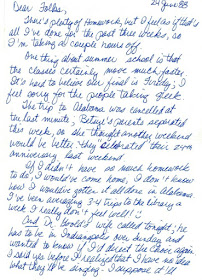 24 June 83
Dear Folks,
There's plenty of homework, but I feel as if that's
all I've done for the past three weeks, so
I'm taking a couple hours off.
One thing about summer school is that
the classes certainly move much faster.
It's hard to believe our final is Friday; I
feel sorry for the people taking
The trip to Alabama was cancelled at
the last minute; Betsy's parents separated
this week, so she thought another weekend
would be better; they celebrated their 25th
anniversary last weekend.
If I didn't have so much homework
to do, I would've come home. I don't know
how I would've gotten it all done in Alabama
I've been averaging 3-4 trips to the library a
week & really don't feel well!
And Dr. wife called tonight; he
has to be in Indianapolis over Sunday and
wanted to know if I'd direct the choir again.
I said yes before I realized that I have no idea
what they'll be singing. I suppose it'll